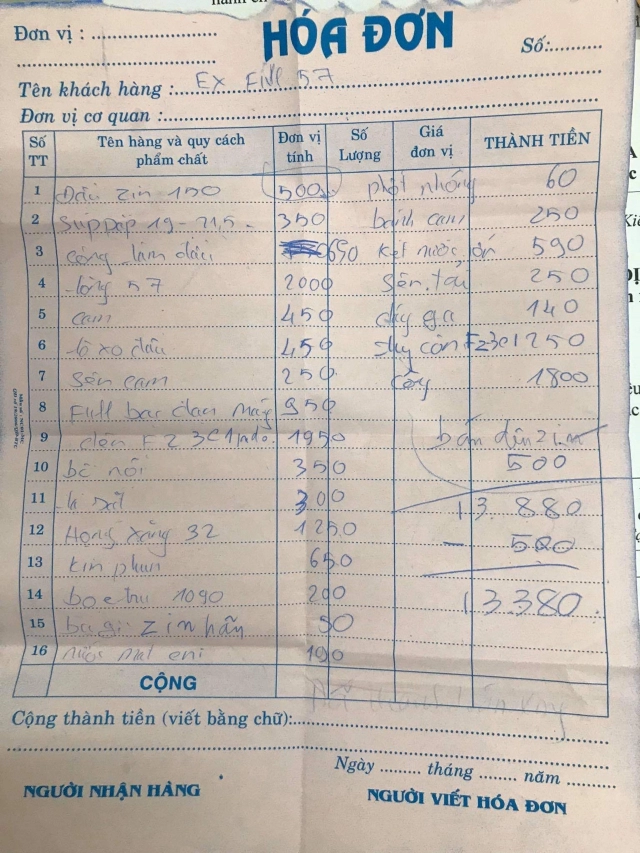 Đơn vị :
HÓA ĐƠN
Số:
Tên khách hàng : EX 57
Đơn vị cơ quan :
Số TT Tên hàng và quy cách phẩm chất Đơn vị tính Số Lượng Giá đơn vị THÀNH TIỀN
1 Dầu zin 150 500 phột nhông 60
2 Súppáp 19-21,5 350 bánh cam 250
3 công làm đầu 650 két nước ốn 590
4 lòng 57 2000 Sên tải 250
5 cam 450 dây ga 140
6 lò xo đầu 450 dây côn FZ3C1 250
7 Sên cam 250 công 1800
8 Full bạc đạn máy 950
9 dên FZ3C1 indo 1950 bán dên zin
10 bố nồi 350 500
11 300 13 880
12 Họng xăng 32 1250 - 500
13 kim phun 650
14 1090 200 13 380
15 zin 90
16 nước mát 190
CỘNG
Cộng thành tiền (viết bằng chữ):
Ngày ......... tháng ........ năm .........
NGƯỜI NHẬN HÀNG NGƯỜI VIẾT HÓA ĐƠN